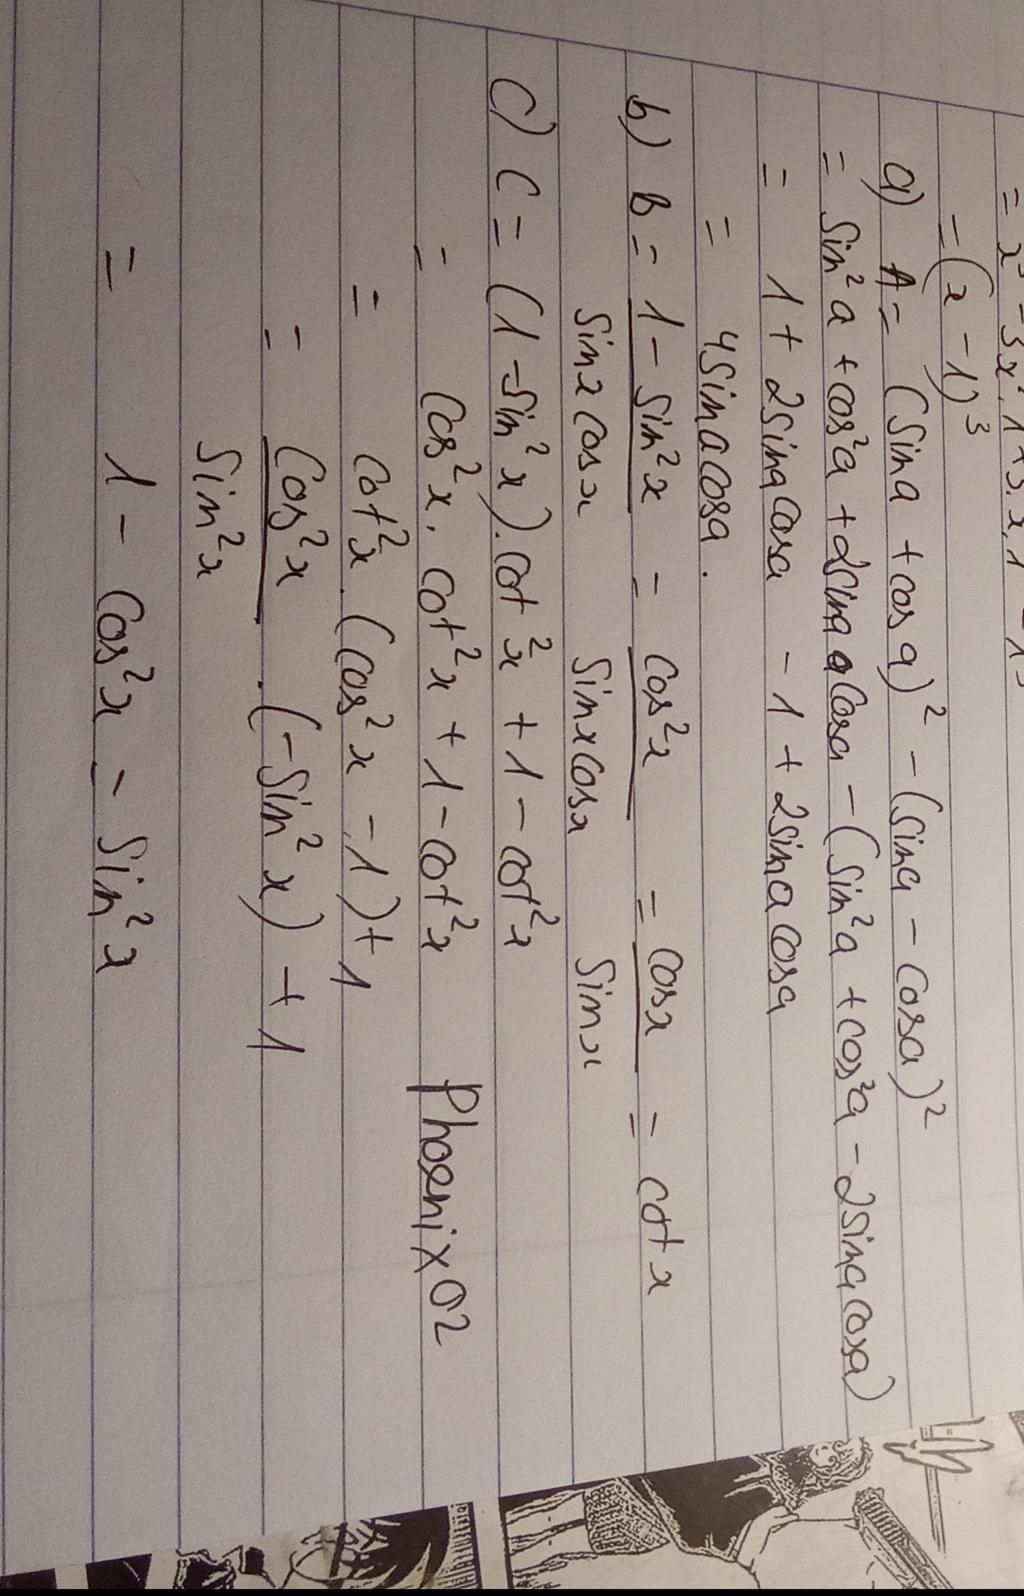 = (x - 1)³
a) A = (sina + cosa)² - (sina - cosa)²
= sin²a + cos²a + 2sina cosa - (sin²a + cos²a - 2sinacosa)
= 1 + 2sinacosa - 1 + 2sinacosa
= 4sinacosa.
b) B = (1 - sin²x)/(sinxcosx) - cos²x/(sinxcosx) = cosx/sinx = cotx
c) C = (1 - sin²x).cot²x + 1 - cot²x
= cos²x. cot²x + 1 - cot²x
Phoenix02
= cot²x. (cos²x - 1) + 1
= cos²x/sin²x . (-sin²x) + 1
= 1 - cos²x = sin²x